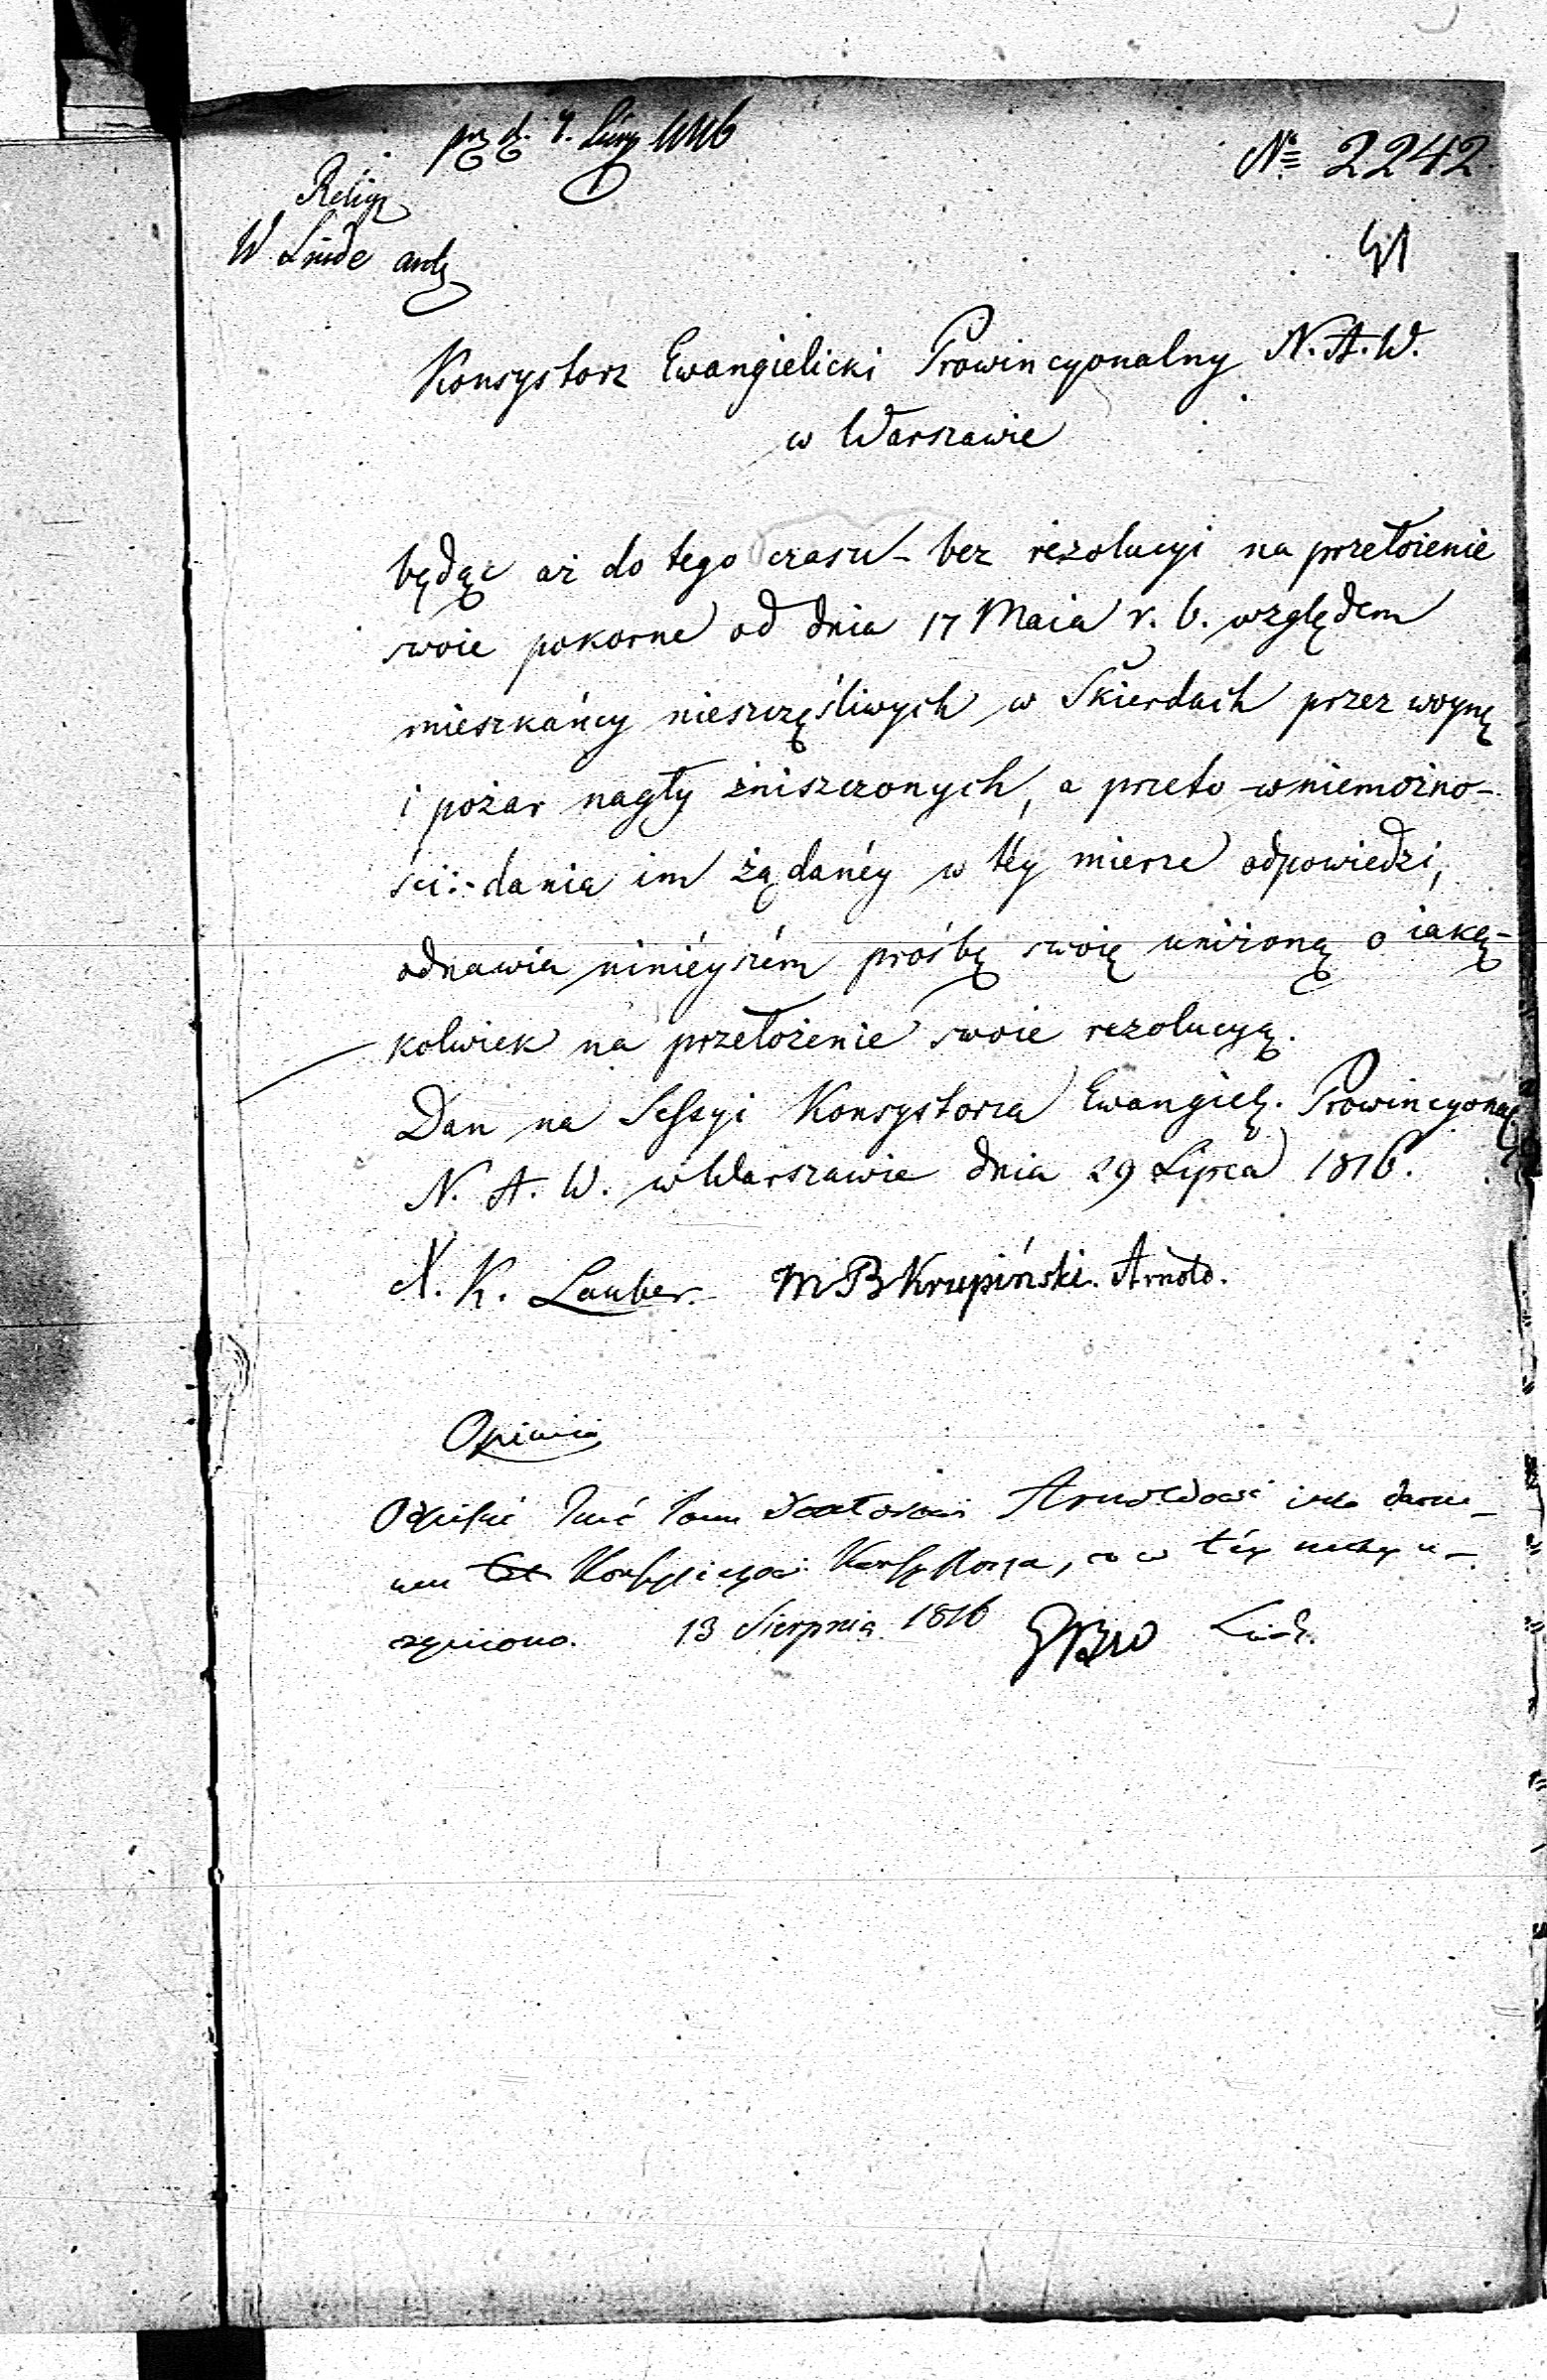 № 2242
Relig
W Linde
Konsystorz Ewangielicki Prowincyonalny N. A. W.
w Warszawie
będąc aż do tego czasu bez rezolucyi na przełożenie
swoie pokorne od dnia 17 Maia r. b. względem
mieszkańcy nieszczęśliwych w Skierdach przez woynę
i pożar nagły zniszczonych, a przeto w niemożno-
ści dania im żądanéy w téy mierze odpowiedzi,
odnawia niniéyszém prośbę swoię uniżoną o iakę-
kolwiek na przełożenie swoie rezolucyą.
Dan na Sessyi Konsystorza Ewangiel. Prowincyonal.
N. A. W. w Warszawie dnia 29 Lipca 1816.
X. K. Lauber. M B Krupiński. Arnold.
Opinia
Arnoldowi
Konsystorza, co w téy u-
czyniono. 13 Sierpnia 1816